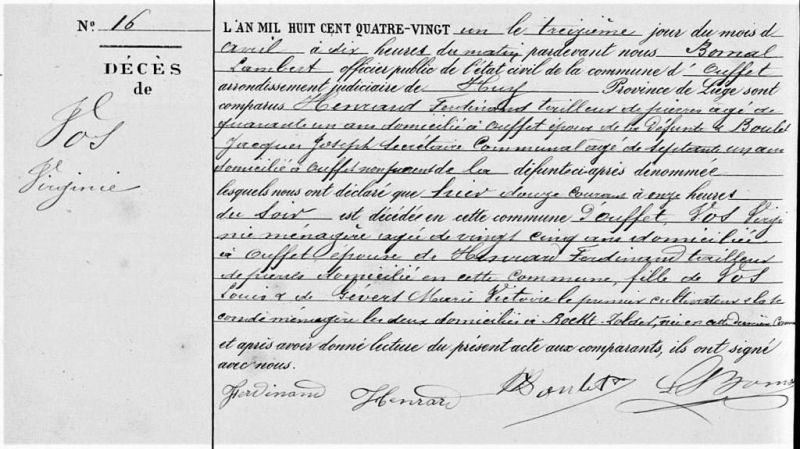 No. 16
DÉCÈS
de
Vos
Virginie
L'AN MIL HUIT CENT QUATRE-VINGT un le treizième jour du mois d
avril à dix heures du matin pardevant nous Bomal
Lambert officier public de l'état civil de la commune d'Ouffet
arrondissement judiciaire de Huy Province de Liège sont
comparus Henrard Ferdinand tailleur de pierres agé de
quarante un ans domicilié à Ouffet époux de la défunte & Boulet
Jacques Joseph Secrétaire Communal agé de septante un ans
domicilié à Ouffet non parent de la défunte ci-après dénommée
lesquels nous ont déclaré que hier douze courant à onze heures
du Soir est décédée en cette commune D'ouffet, Vos Virgi
nie ménagère agée de vingt cinq ans domiciliée
à Ouffet épouse de Henrard Ferdinand tailleur
de pierres domicilié en cette Commune, fille de Vos
Louis & de Gévers Marie Victoire le premier cultivateur & la se
conde ménagère les deux domiciliés à Bockt-Zolder, née en cette dernière Comm
et après avoir donné lecture du présent acte aux comparants, ils ont signé
avec nous.
Ferdinand Henrard Boulet LBomal